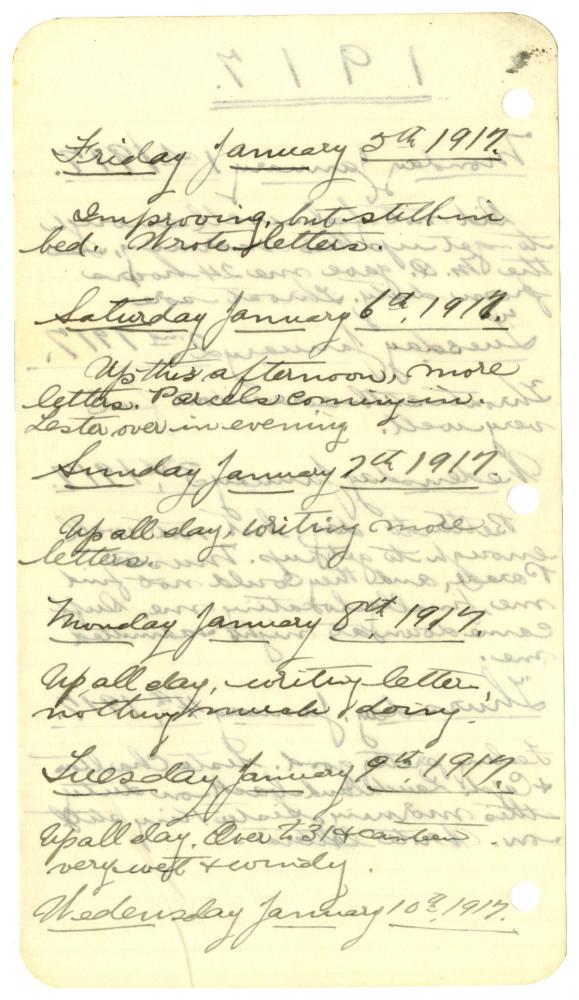 Friday January 5th 1917.
Improving, but still in
bed. Wrote letters.
Saturday January 6th, 1917.
Up this afternoon, more
letters. Parcels coming in.
Lester over in evening.
Sunday January 7th, 1917.
Up all day, writing more
letters.
Monday January 8th, 1917.
Up all day, writing letters,
nothing much doing.
Tuesday January 9th, 1917.
Up all day. Over to 31 + canteen.
very wet + windy.
Wedensday January 10th, 1917.